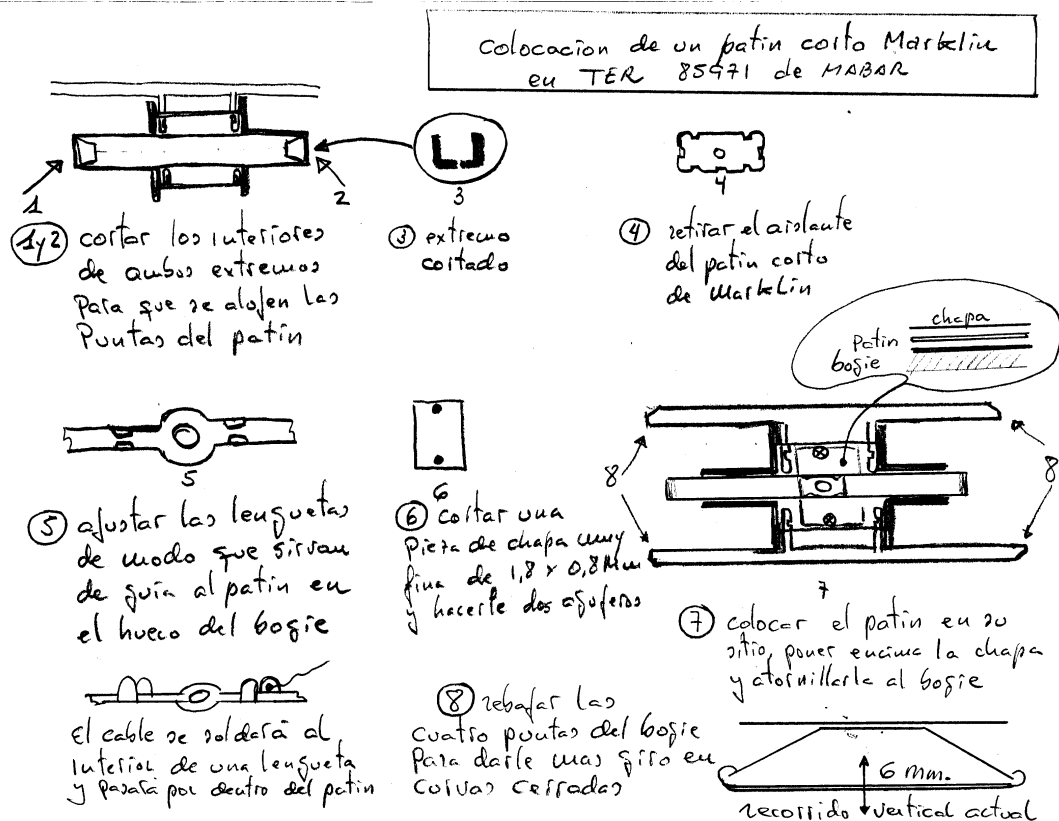 colocacion de un patin corto Marklin
en TER 85971 de MABAR
1
2
3
4
1y2 cortar los interiores
de ambos extremos
Para que se alojen las
Puntas del patin
3 extremo
cortado
4 retirar el aislante
del patin corto
de Marklin
chapa
Patin
bogie
5
6
8
8
7
5 ajustar las lenguetas
de modo que sirvan
de guia al patin en
el hueco del bogie
6 cortar una
pieza de chapa muy
fina de 1,8 x 0,8 Mm
y hacerle dos agujeros
7 colocar el patin en su
sitio, poner encima la chapa
y atornillarla al bogie
El cable se soldará al
interior de una lengueta
y pasará por dentro del patin
8 rebajar las
cuatro puntas del bogie
Para darle mas giro en
curvas cerradas
6 mm.
recorrido vertical actual